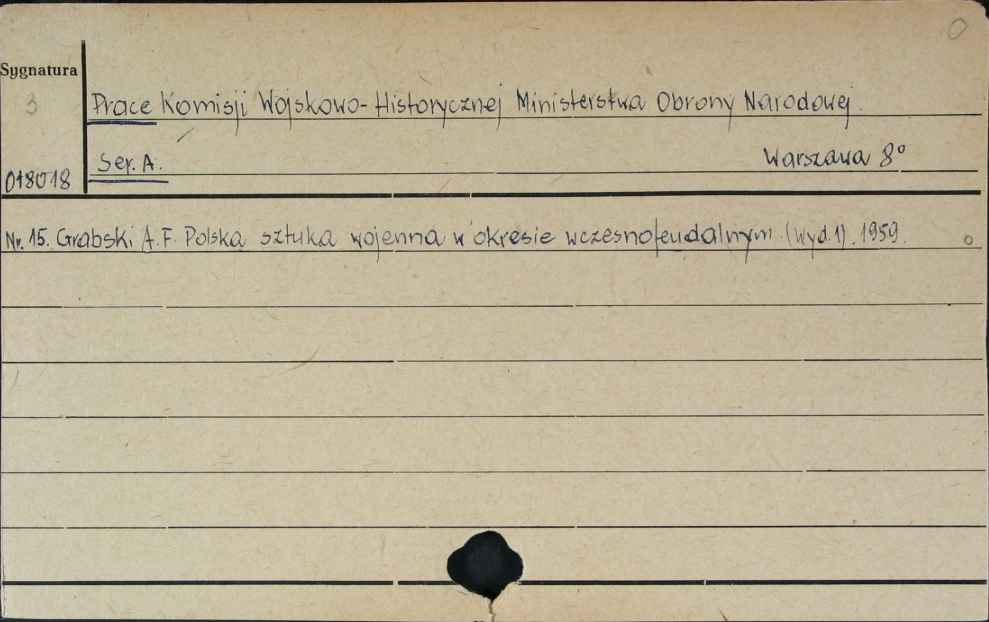 0
Sygnatura
3
Prace Komisji Wojskowo-Historycznej Ministerstwa Obrony Narodowej.
Ser. A. Warszawa 8°
018018
Nr. 15. Grabski A.F. Polska sztuka wojenna w okresie wczesnofeudalnym. (Wyd. 1). 1959. o